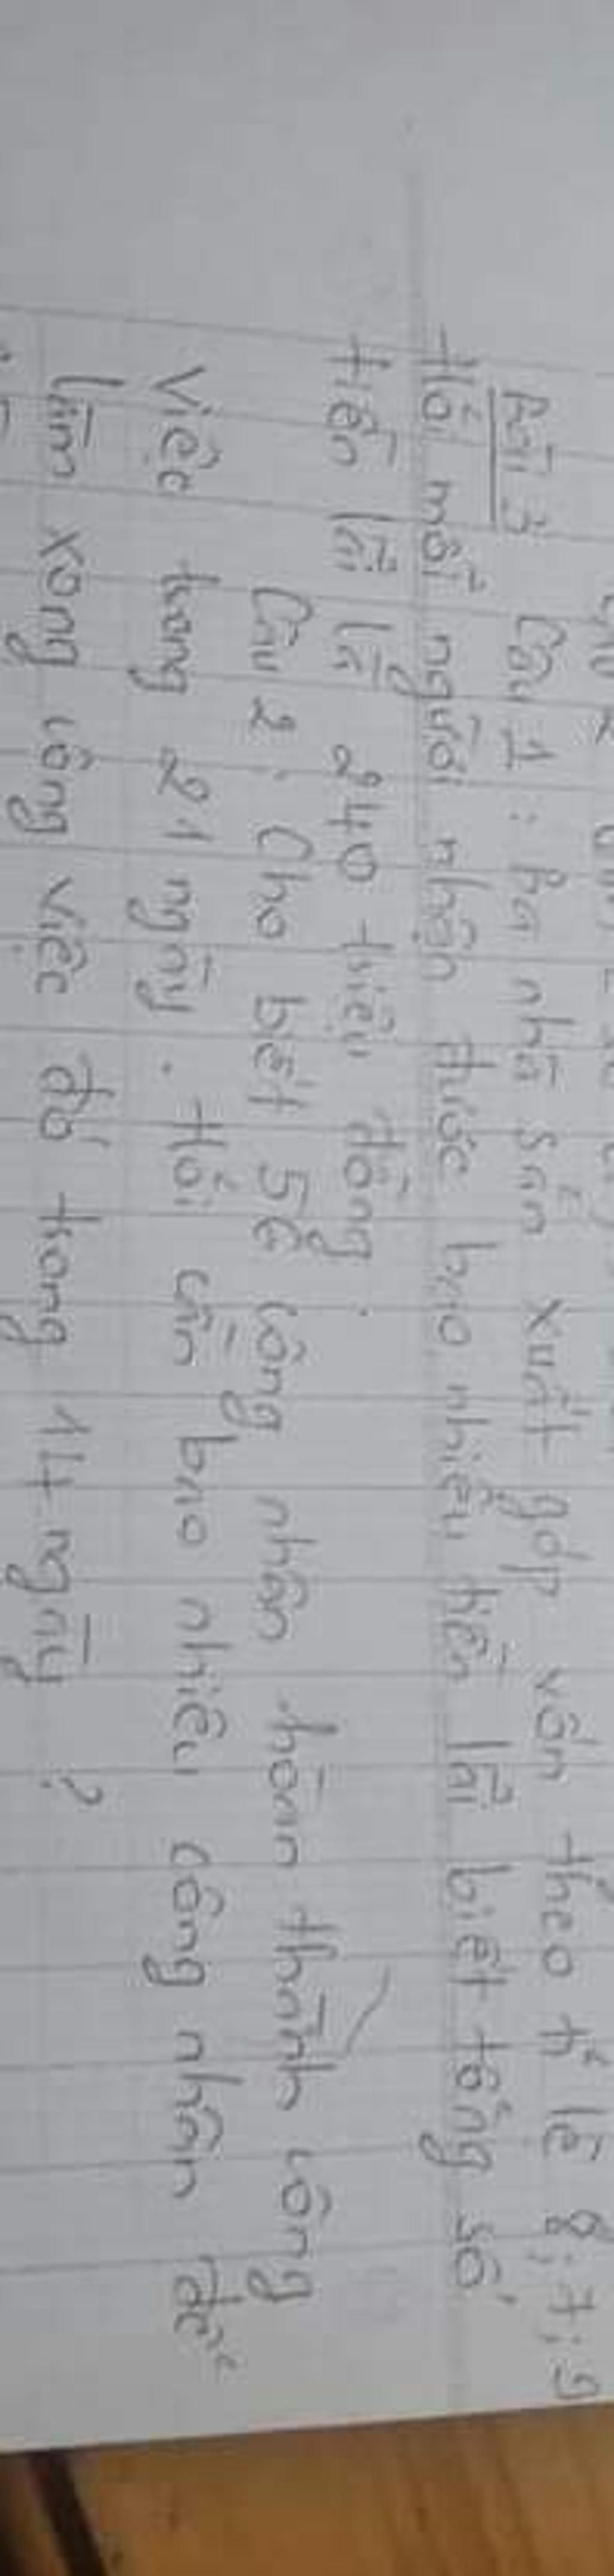 Bài 3 Câu 1 : Ba nhà sản xuất góp vốn theo tỉ lệ 8; 7; 9
Hỏi mỗi người nhận được bao nhiêu tiền lãi biết tổng số
tiền lãi là 240 triệu đồng.
Câu 2 : Cho biết 56 công nhân hoàn thành công
việc trong 21 ngày. Hỏi cần bao nhiêu công nhân để
làm xong công việc đó trong 14 ngày ?